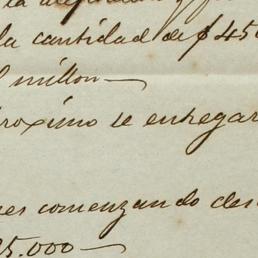 la cantidad de $ 450
millon—
proximo se entregar
es comenzando des
25.000—